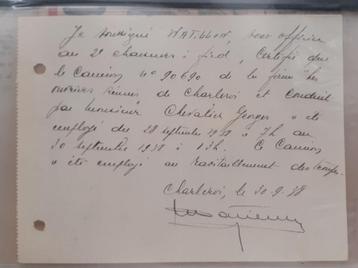 Je soussigné WATILLON, sous officier
au 2e chasseurs à pied, certifie que
le camion n° 90690 de la firme les
ouvrières réunies de Charleroi et conduit
par monsieur Chevalier Georges a été
employé du 28 septembre 1938 à 7h au
30 septembre 1938 à 13h. Ce camion
a été employé au ravitaillement des troupes.
Charleroi, le 30.9.38